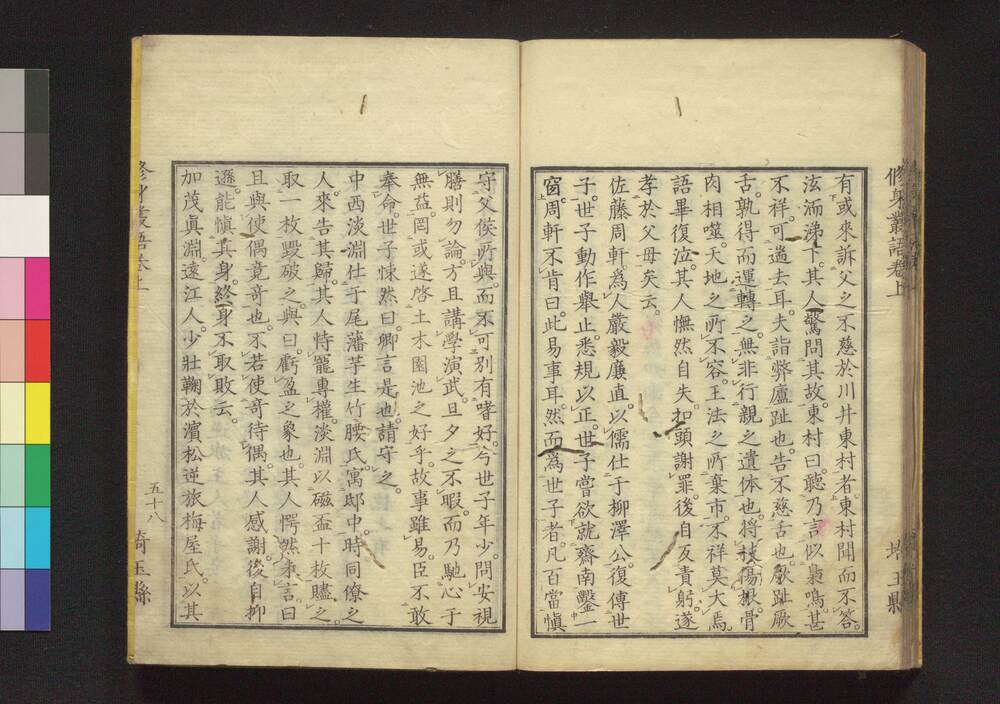 修身叢語卷上
埼玉縣
有或來訴父之不慈於川井東村者。東村聞而不答。
泫洏涕下。其人驚問其故。東村曰。聽乃言。似梟鳴甚
不祥。可遄去耳。夫詣弊廬趾也。告不慈舌也。厥趾厥
舌。孰得而運轉之。無非行親之遺体也。將
肉相噬。天地之所不容。王法之所棄市。不祥莫大焉。
語畢復泣。其人憮然自失。扣頭謝罪。後自反責躬。遂
孝於父母矣云。
佐藤周軒為人嚴毅廉直。以儒仕于柳澤公。復傅世
子。世子動作擧止。悉規以正。世子嘗欲就齋南鑿一
窗。周軒不肯曰。此易事耳。然而為世子者。凡百當愼
守父侯所與。而不可別有嗜好。今世子年少。問安視
膳則勿論。方且講學演武。旦夕之不暇。而乃馳心于
無益。罔或遂啓土木園池之好乎。故事雖易。臣不敢
奉命。世子悚然曰。卿言是也。請守之。
中西淡淵仕于尾藩芋生竹腰氏。寓邸中。時同僚之
人。來告其歸。其人恃寵專權。淡淵以磁盃十枚贐之。
取一枚毀破之。與曰。虧盈之象也。其人愕然未言。曰
且與使偶竟奇也。不若使奇待偶。其人感謝。後自抑
遜。能愼其身。終身不取敗云。
加茂眞淵。遠江人。少壯鞠於濱松逆旅梅屋氏。以其
修身叢語卷上
五十八
埼玉縣